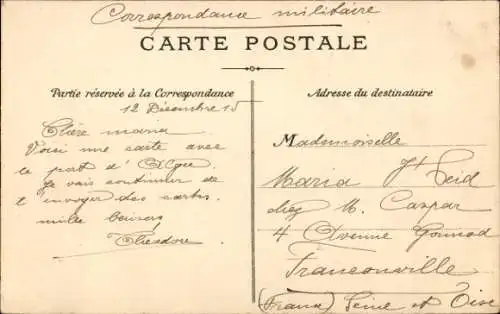 Correspondance militaire
CARTE POSTALE
Partie réservée à la Correspondance
Adresse du destinataire
12 Décembre 15
Chère maria
Voisi une carte avec
le port d'
Je vais continuer de
t'envoyer des cartes
mille baisers
Théodore
Mademoiselle
Maria
chez M. Caspar
4 Avenue Gounod
Franconville
(France) Seine et Oise